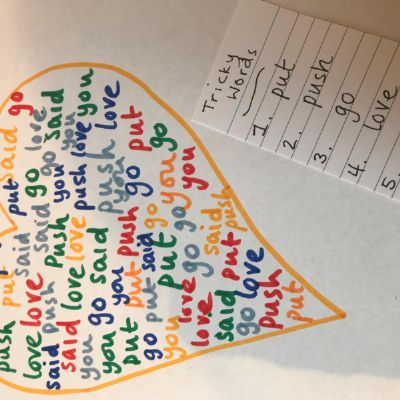 Tricky
Words
1. put
2. push
3. go
4. love
5.
push put put said go
love love said said go love
said push said push go said
said love push you you
you love love push love you
you go said you push love
put you put push go put
go put said go you go
you put go you
love go said push
love said put push
go love
push
put